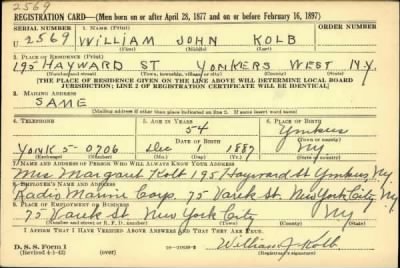 2569
REGISTRATION CARD—(Men born on or after April 28, 1877 and on or before February 16, 1897)
SERIAL NUMBER 1. NAME (Print) ORDER NUMBER
U 2569 WILLIAM JOHN KOLB
(First) (Middle) (Last)
2. PLACE OF RESIDENCE (Print)
195 HAYWARD ST YONKERS WEST N.Y.
(Number and street) (Town, township, village, or city) (County) (State)
[THE PLACE OF RESIDENCE GIVEN ON THE LINE ABOVE WILL DETERMINE LOCAL BOARD
JURISDICTION; LINE 2 OF REGISTRATION CERTIFICATE WILL BE IDENTICAL]
3. MAILING ADDRESS
SAME
[Mailing address if other than place indicated on line 2. If same insert word same]
4. TELEPHONE 5. AGE IN YEARS 6. PLACE OF BIRTH
54 Yonkers
DATE OF BIRTH (Town or county)
YONK 5-0706 Dec 1 1887 NY
(Exchange) (Number) (Mo.) (Day) (Yr.) (State or country)
7. NAME AND ADDRESS OF PERSON WHO WILL ALWAYS KNOW YOUR ADDRESS
Mrs Margaret Kolb 195 Hayward St Yonkers Ny
8. EMPLOYER'S NAME AND ADDRESS
Radio Marine Corp. 75 Varick St. New York City Ny
9. PLACE OF EMPLOYMENT OR BUSINESS
75 Varick St. New York City Ny
(Number and street or R. F. D. number) (Town) (County) (State)
I AFFIRM THAT I HAVE VERIFIED ABOVE ANSWERS AND THAT THEY ARE TRUE.
D. S. S. Form 1
(Revised 4-1-42) (over) William J. Kolb
(Registrant's signature)